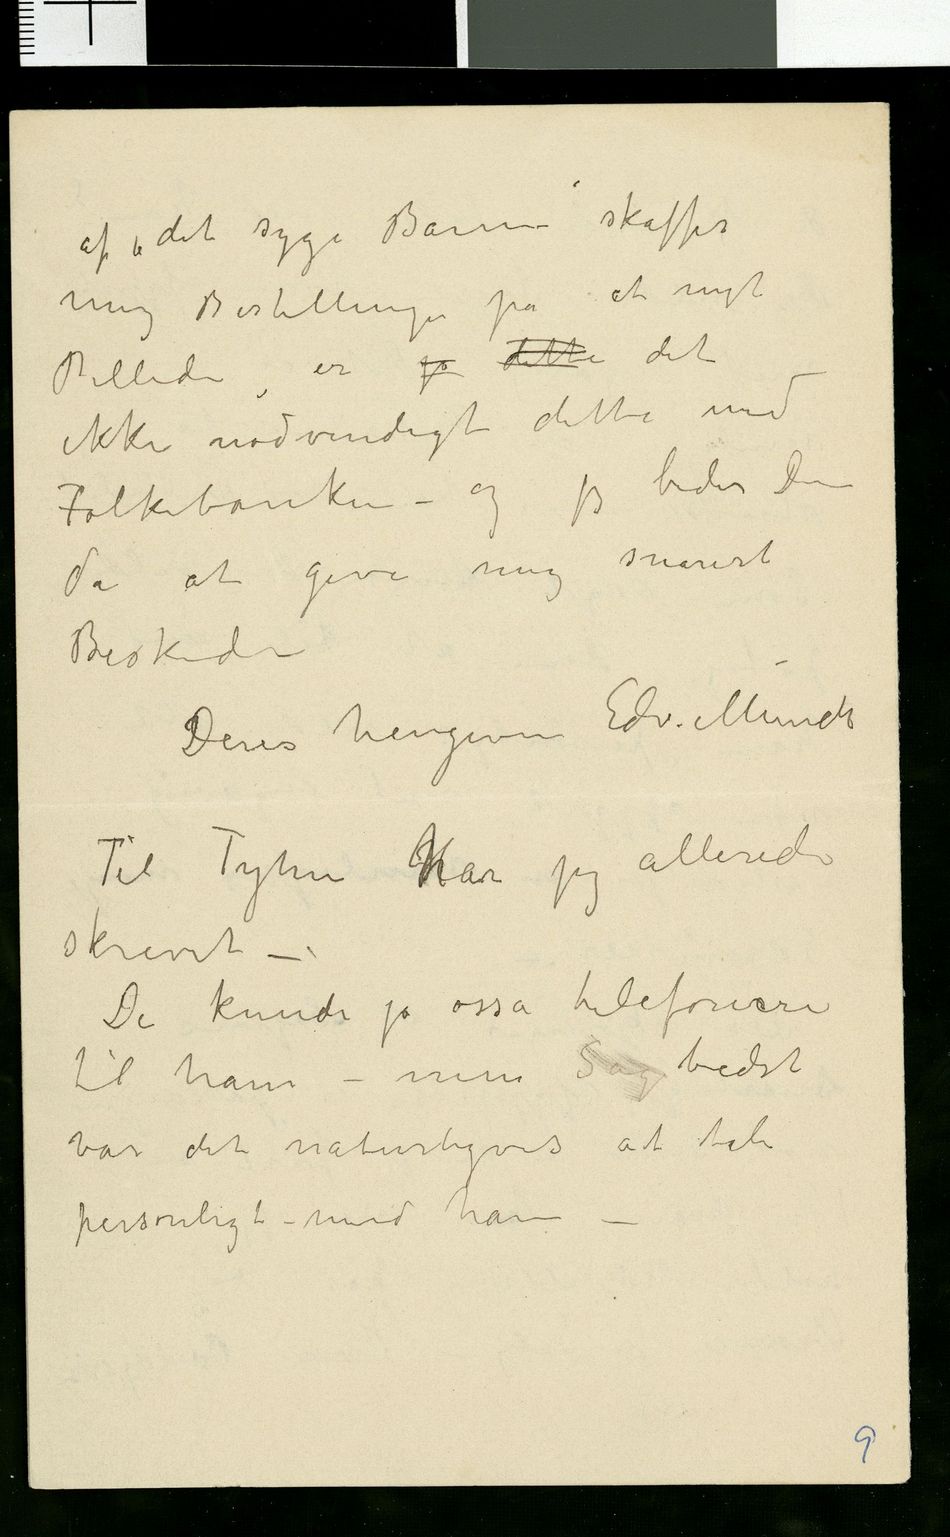 af „det syge Barn" skaffes
mig Bestillinger på et nyt
Billede, er ja dette det
ikke nødvendigt dette med
Folkebanken – og jeg beder Dem
da at give mig snarest
Beskeden
Deres hengivne Edv. Munch
Til har jeg allerede
skrevet –.
De kunde jo osså telefonere
til ham – men Sag bedst
var det naturligvis at tale
personligt – med ham –
9